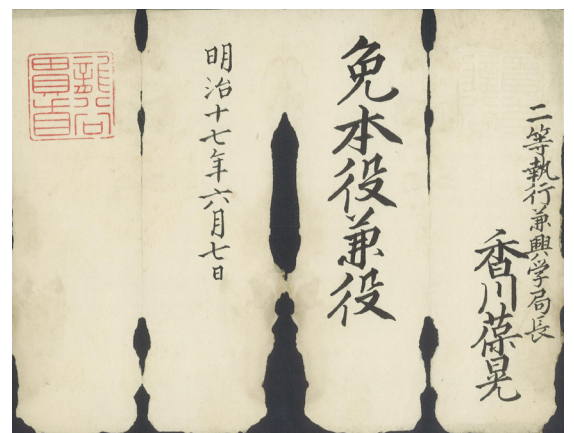 二等執行兼興学局長
香川葆晃
免本役兼役
明治十七年六月七日